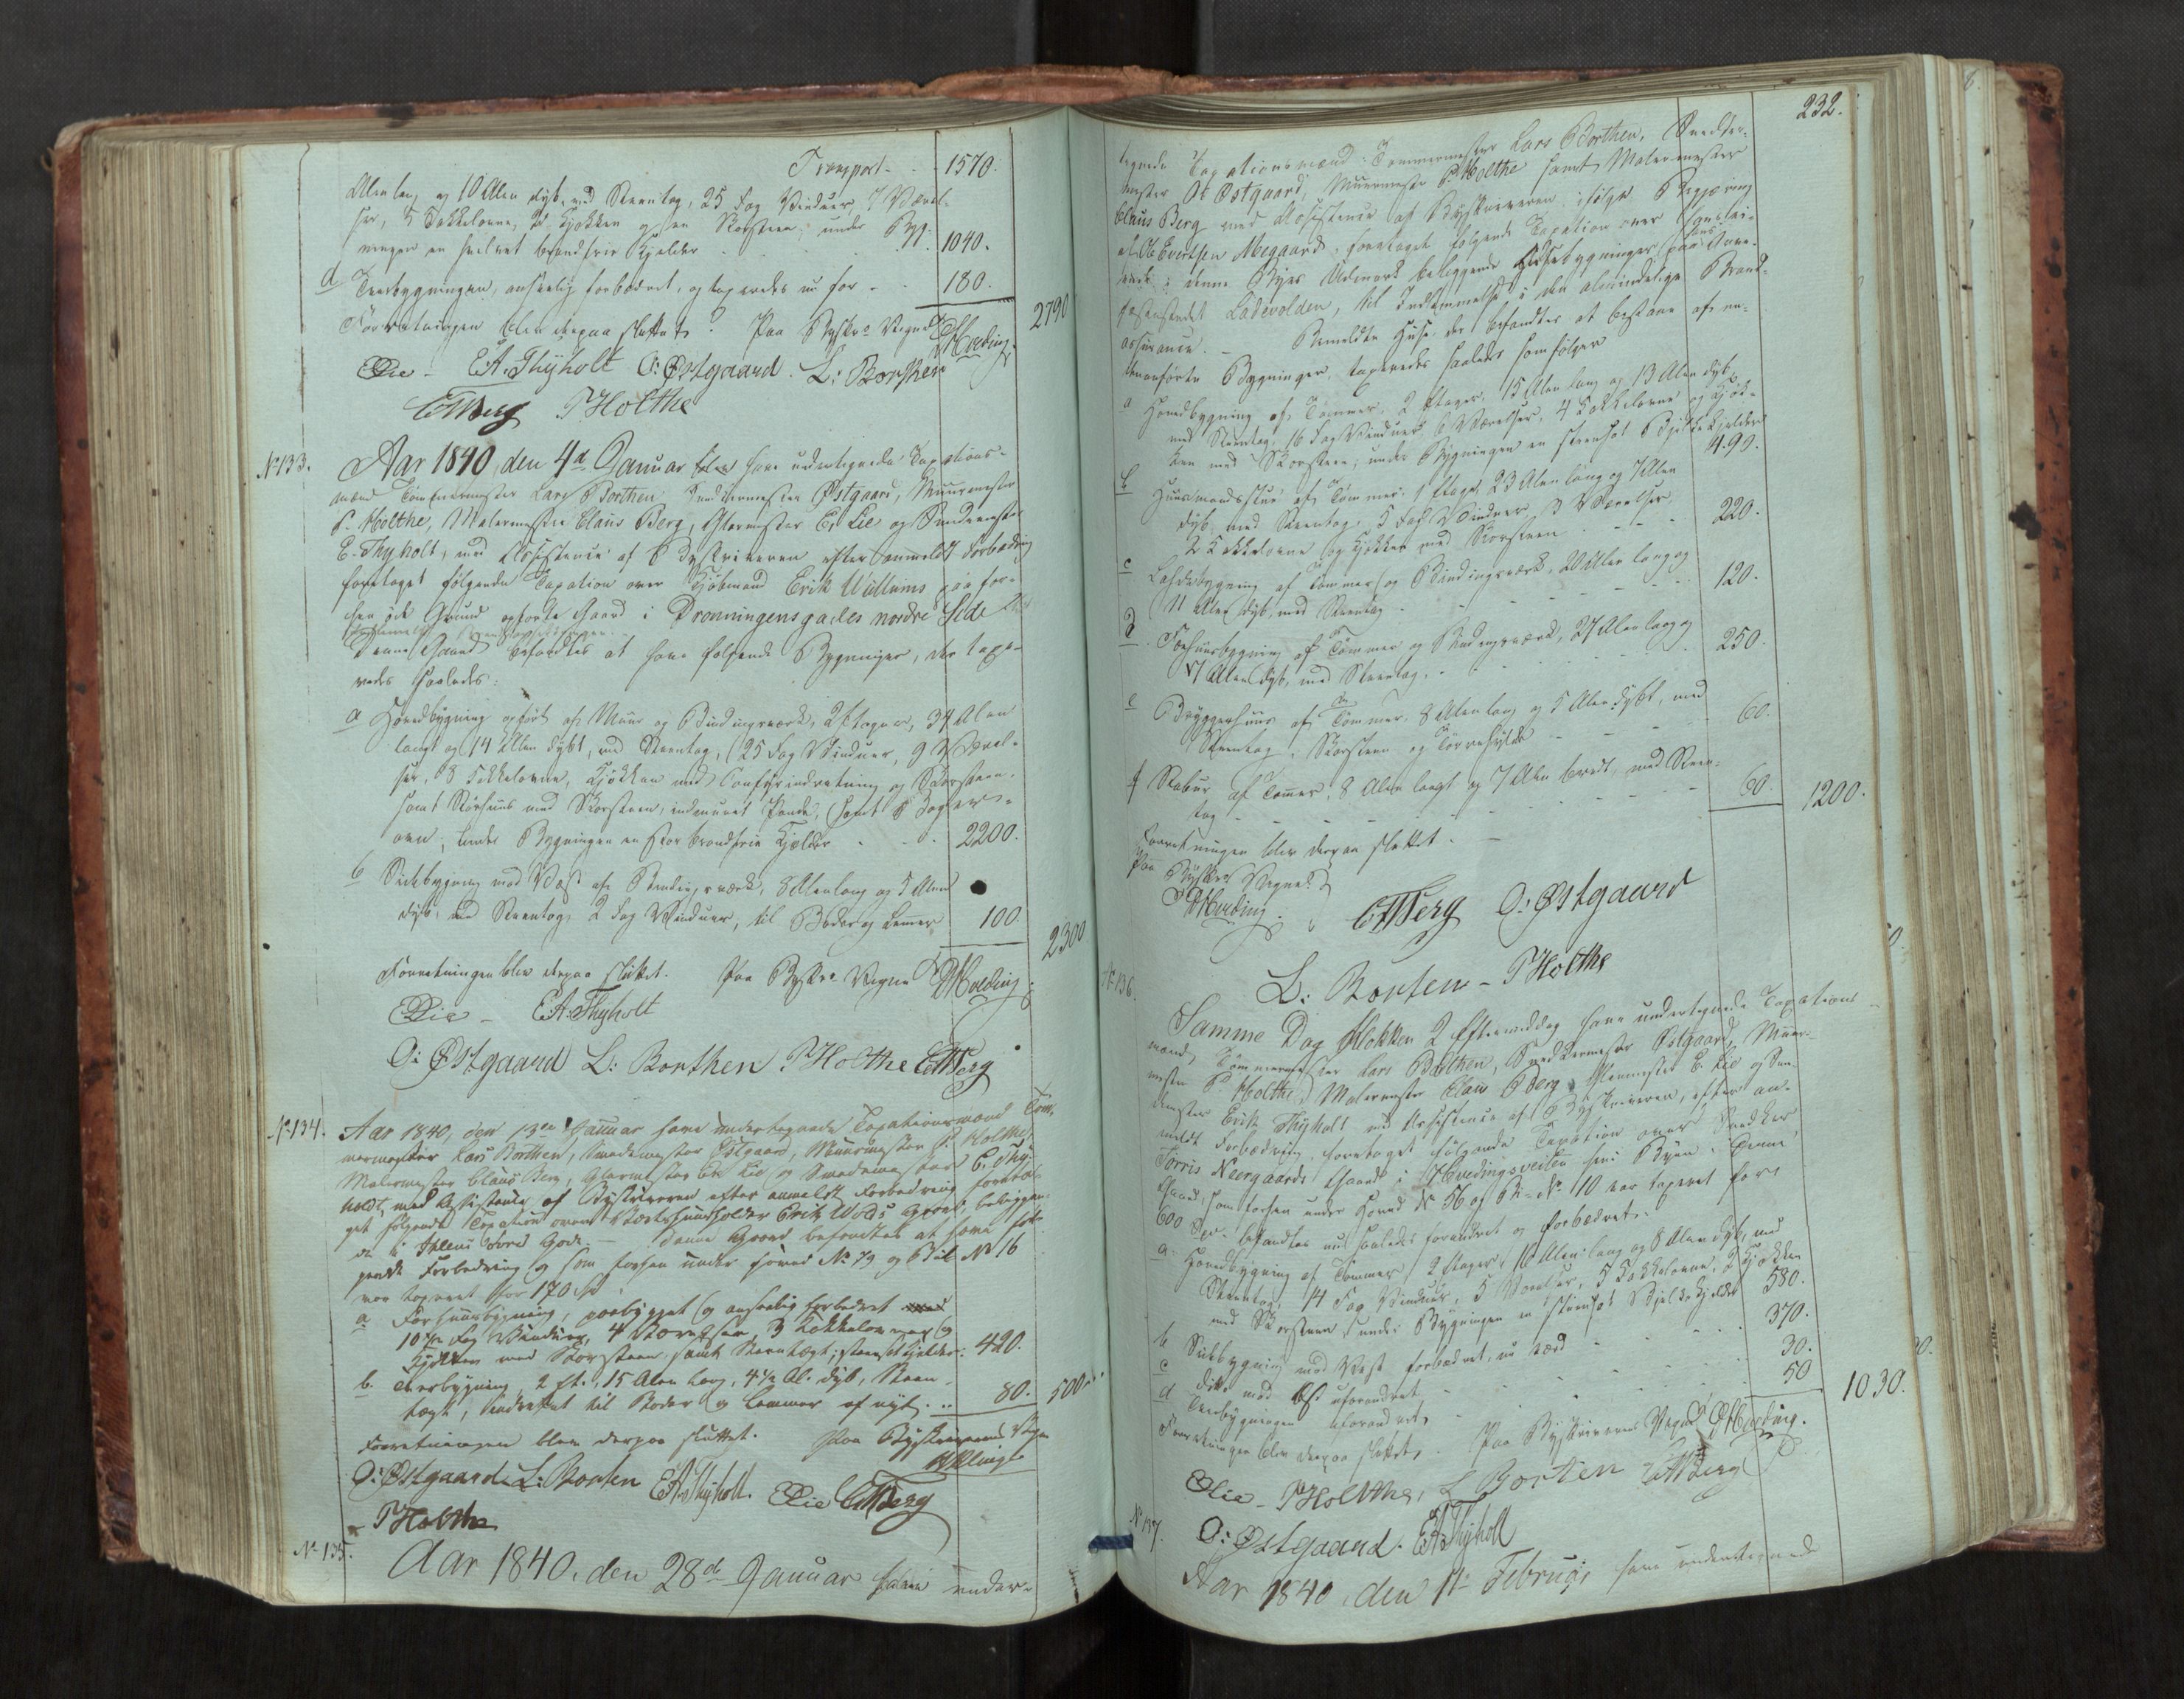 Transport - - 1570.
Alen lang og 10 Alen dyb, med Steentag, 25 Fag Vinduer, 7 Værel-
ser, 5 Kakkelovne, Kjøkken og en Skorsteen; under Byg-
ningen en hvælvet brandfrie Kjelder 1040.
d Tverbygningen, anseelig forbedret, og taxeredes nu for - - 180.
2790
Forretningen blev derpaa sluttet. Paa Byskr. Vegne
Hveding.
Lie - E. A. Thyholt O: Østgaard. L: Borthen
Berg P Holthe
No 133. Aar 1840, den 4de Januar have undertegnede Taxations-
mænd Tømmermester Lars Borthen, Snedkermester Østgaard, Muurmester
P. Holthe, Malermester Claus Berg, Glarmester E. Lie og Smedemester
E. Thyholt, med Assistence af Byskriveren efter anmeldt Forbedring
foretaget følgende Taxation over Kjøbmand Erik Wullums paa for-
hen øde Grund opførte Gaard i Dronningensgades nordre Side
Denne Gaard befandtes at have følgende Bygninger, der taxe-
redes saaledes:
a Hovedbygning opført af Muur og Bindingsværk, 2 Etager, 34 Alen
langt og 14 Alen dybt, med Steentag, 25 Fag Vinduer, 9 Værel-
ser, 8 Kakkelovne, Kjøkken med Comfyrindretning og Skorsteen,
samt med Skorsteen, indmuret Pande, samt Bager-
ovn; under Bygningen en stor brandfrie Kjelder - - 2200.
b Sidebygning mod Vest af Bindingsværk, 8 Alen lang og 5 Alen
dyb, med Steentag, 2 Fag Vinduer, til Boder og Lemmer 100
2300
Forretningen blev derpaa sluttet. Paa Byskr. Vegne Hveding.
Lie - E. A. Thyholt
O: Østgaard L: Borthen P Holthe Berg
No 134. Aar 1840, den 13de Januar have undertegnede Taxationsmænd Tøm-
mermester Lars Borthen, Snedkermester Østgaard, Muurmester P. Holthe,
Malermester Claus Berg, Glarmester E. Lie og Smedemester E. Thy-
holdt, med Assistence af Byskriveren efter anmeldt Forbedring foreta-
get følgende Taxation over Værtshuusholder Erik Gaard, beliggen-
de i Ihlens øvre Gade. - Denne Gaard befandtes at have føl-
gende Forbedring og som forhen under Hoved No 79 og Bil No 16
var taxeret for 170
a Forhuusbygning, paabygget og anseelig forbedret
10 1/2 Fag Vinduer, 4 Værelser, 3 Kakkelovner og
Kjøkken med Skorsteen, samt Steentagt; steensat Kjelder: 420.
b. Tverbygning 2 Et., 15 Alen lang, 4 1/2 Al. dyb, Steen-
tagt, indrettet til Boder og Lemmer af nyt. .. 80. 500
Forretningen blev derpaa sluttet. Paa Byskriverens Vegne
O: Østgaard. L: Borten E. A. Thyholt. Lie Berg
P Holthe
No 135. Aar 1840, den 28de Januar have under-
232.
tegnede Taxationsmænd: Tømmermester Lars Borthen, Snedker-
mester O. Østgaard, Muurmester P. Holthe samt Malermester
Claus Berg med Assistence af Byskriveren ifølge Begjæring
af Ole Evertsen Meegaard, foretaget følgende Taxation over
i denne Byes Udmark beliggende Huusebygninger paa
Ladevolden, til Indlemmelse i den almindelige Brand-
assurance. - Bemeldte Huse, der befandtes at bestaae af ne-
denanførte Bygninger, taxeredes saaledes som følger
a Hovedbygning af Tømmer, 2 Etager, 15 Alen lang og 13 Alen dyb,
med Steentag, 16 Fag Vinduer, 6 Værelser, 4 Kakkelovne og Kjøk-
ken med Skorsteen; under Bygningen en steensat Bjelkekjelder 490.
b Huusmandsstue af Tømmer, 1 Etage, 23 Alen lang og 7 Alen
dyb, med Steentag, 5 Fag Vinduer, 3 Værelser,
2 Kakkelovne og Kjøkken med Skorsteen - - 220.
c Ladebygning af Tømmer og Bindingsværk, 20 Alen lang og
11 Alen dyb, med Steentag - - - 120.
d Fæhuusbygning af Tømmer og Bindingsværk, 27 Alen lang og
Alen dyb, med Steentag. - - 250.
e Bryggerhuus af Tømmer, 8 Alen lang og 5 Alen dybt, med
Steentag, Skorsteen og Tørrehylde - - - 60.
f Stabur af Tømmer, 8 Alen langt og 7 Alen bredt, med Steen-
tag - - - - - 60. 1200.
Forretningen blev derpaa sluttet. -
Paa Byskrs Vegne
Hveding.
Berg O: Østgaard
L: Borten - P Holthe
No 136. Samme Dag Klokken 2 Eftermiddag have undertegnede Taxations-
mænd, Tømmermester Lars Borthen, Snedkermester Østgaard, Muur-
mester P. Holthe, Malermester Claus Berg, Glarmester E. Lie og Sme-
demester Erik Thyholt med Assistence af Byskriveren, efter an-
meldt Forbedring, foretaget følgende Taxation over Snedker
Torris Neergaards Gaard i Hvedingsveiten her i Byen. Denne
Gaard, som forhen under Hoved No 56 og Bi- No 10 var taxeret for
600 Spd. befandtes nu saaledes forandret og forbedret:
a Hovedbygning af Tømmer, 2 Etager, 16 Alen lang og 8 Alen dyb, med
Steentag, 14 Fag Vinduer, 5 Værelser, 5 Kakkelovne, 2 Kjøkken
med Skorsteen, under Bygningen en steensat Bjelkekjelder 580.
b Sidebygning mod Vest forbedret, nu værd - - - 370.
c ditto mod Øst uforandret - - - 30.
d Tverbygningen uforandret - - - 50 1030.
Forretningen blev derpaa sluttet. Paa Byskriverens Vegne Hveding.
Lie - P Holthe, L Borten Berg
O: Østgaard. E. A. Thyholt
No 137. Aar 1840, den 1te Februar have undertegnede